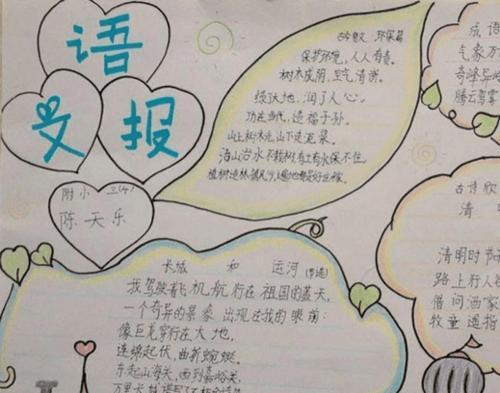 语
文
报
附小 三(4)
陈天乐
环保篇
保护环境，人人有责。
树木成阴，空气清新。
绿化大地，润了人心。
功在当代，造福子孙。
山上树木光，山下走泥浆。
治山治水不栽树，有土有水保不住。
成语
气象万
奇峰异
腾云驾雾
古诗欣
清
清明时节
路上行人
借问酒家
牧童遥指
长城 和 运河(节选)
我驾驶着飞机航行在祖国的蓝天，
一个奇异的景象出现在我的眼前：
像巨龙穿行在大地，
连绵起伏，曲折蜿蜒。
东起山海关，西到嘉峪关，
万里长城